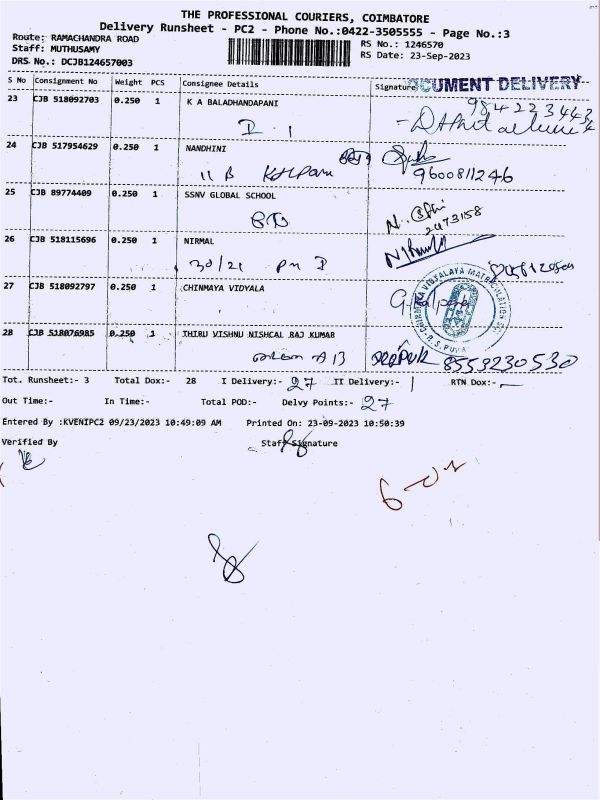 THE PROFESSIONAL COURIERS, COIMBATORE
Delivery Runsheet - PC2 - Phone No.:0422-3505555 - Page No.:3
Route: RAMACHANDRA ROAD
RS No.: 1246570
Staff: MUTHUSAMY
RS Date: 23-Sep-2023
DRS No.: DCJB124657003
S No Consignment No Weight PCS Consignee Details Signature
CUMENT DELIVERY
23 CJB 518092703 0.250 1 K A BALADHANDAPANI
24 CJB 517954629 0.250 1 NANDHINI
11 B
9600811246
25 CJB 89774409 0.250 1 SSNV GLOBAL SCHOOL
26 CJB 518115696 0.250 1 NIRMAL
30/21
27 CJB 518092797 0.250 1 CHINMAYA VIDYALA
CHINMAYA VIDYALAYA MATRICULATION
R.S.PURA
28 CJB 518076985 0.250 1 THIRU VISHNU NISHCAL RAJ KUMAR
8553230530
Tot. Runsheet:- 3 Total Dox:- 28 I Delivery:- 27 II Delivery:- 1 RTN Dox:-
Out Time:- In Time:- Total POD:- Delvy Points:- 27
Entered By :KVENIPC2 09/23/2023 10:49:09 AM Printed On: 23-09-2023 10:50:39
Verified By Staff Signature